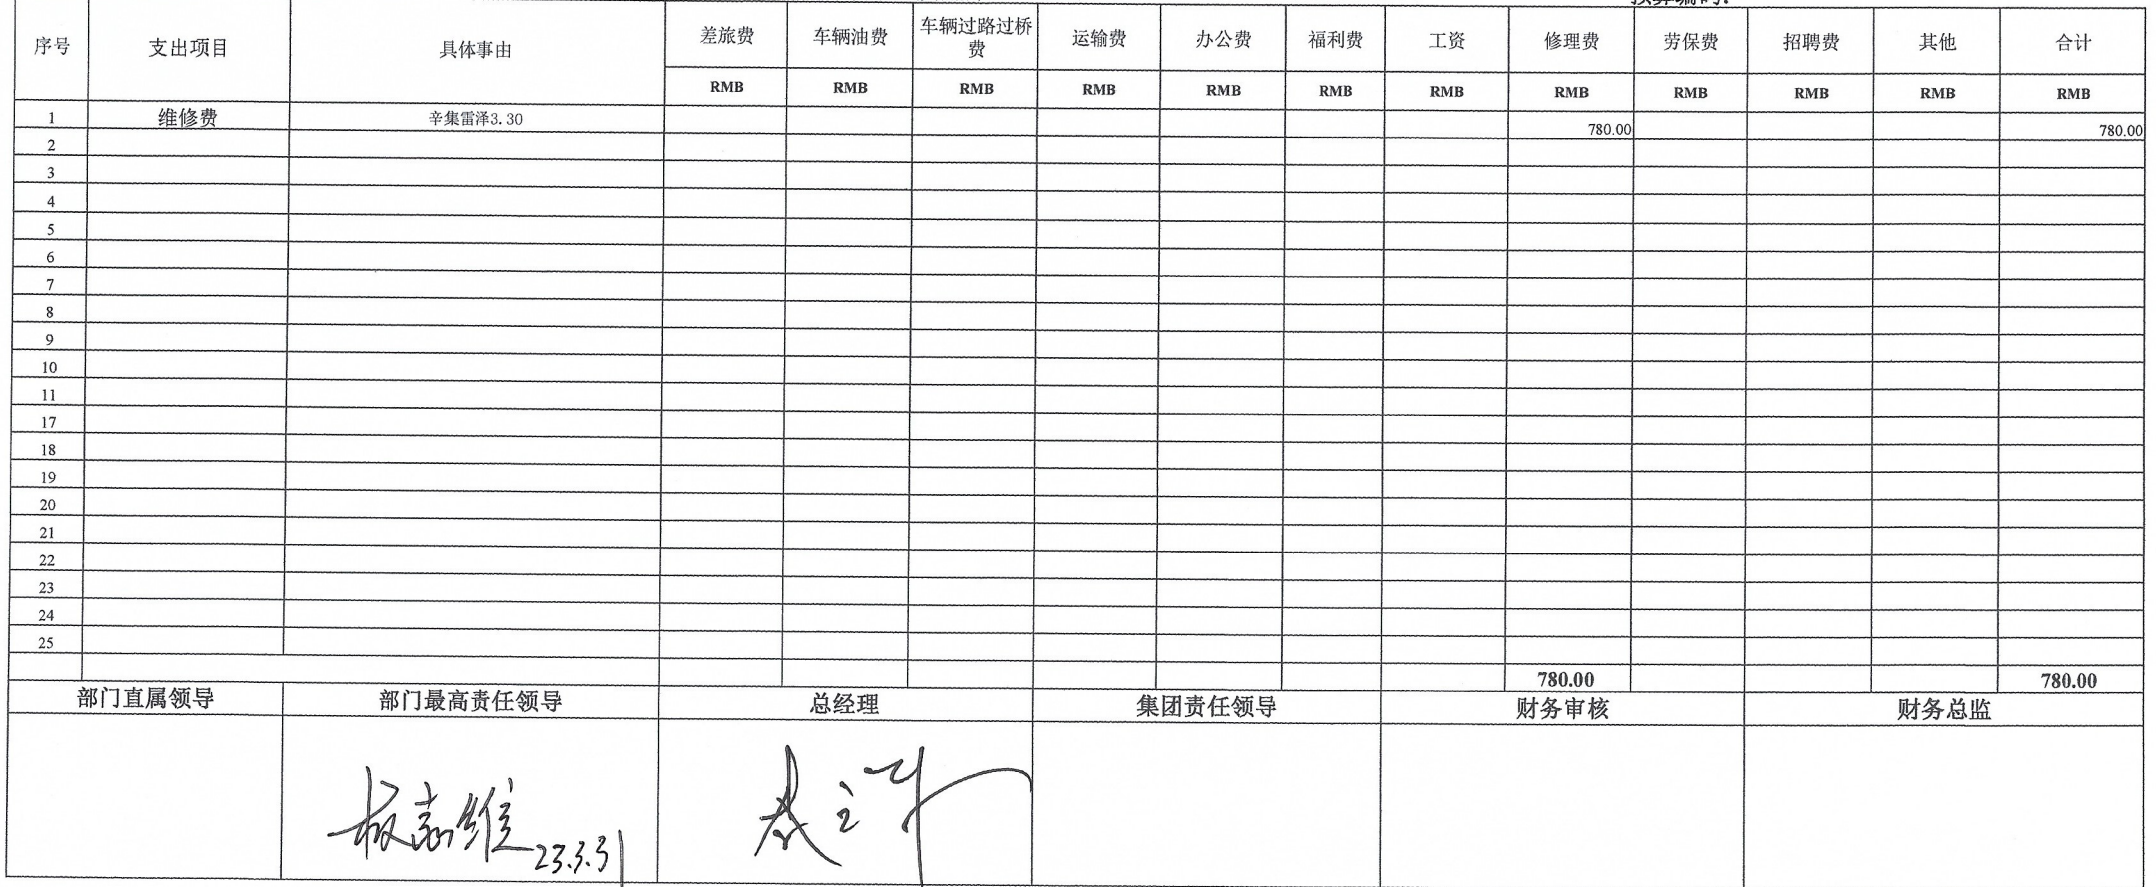 序号 支出项目 具体事由 差旅费 车辆油费 车辆过路过桥费 运输费 办公费 福利费 工资 修理费 劳保费 招聘费 其他 合计
RMB RMB RMB RMB RMB RMB RMB RMB RMB RMB RMB RMB
1 维修费 辛集雷泽3.30 780.00 780.00
2
3
4
5
6
7
8
9
10
11
17
18
19
20
21
22
23
24
25
780.00 780.00
部门直属领导 部门最高责任领导 总经理 集团责任领导 财务审核 财务总监
23.3.31